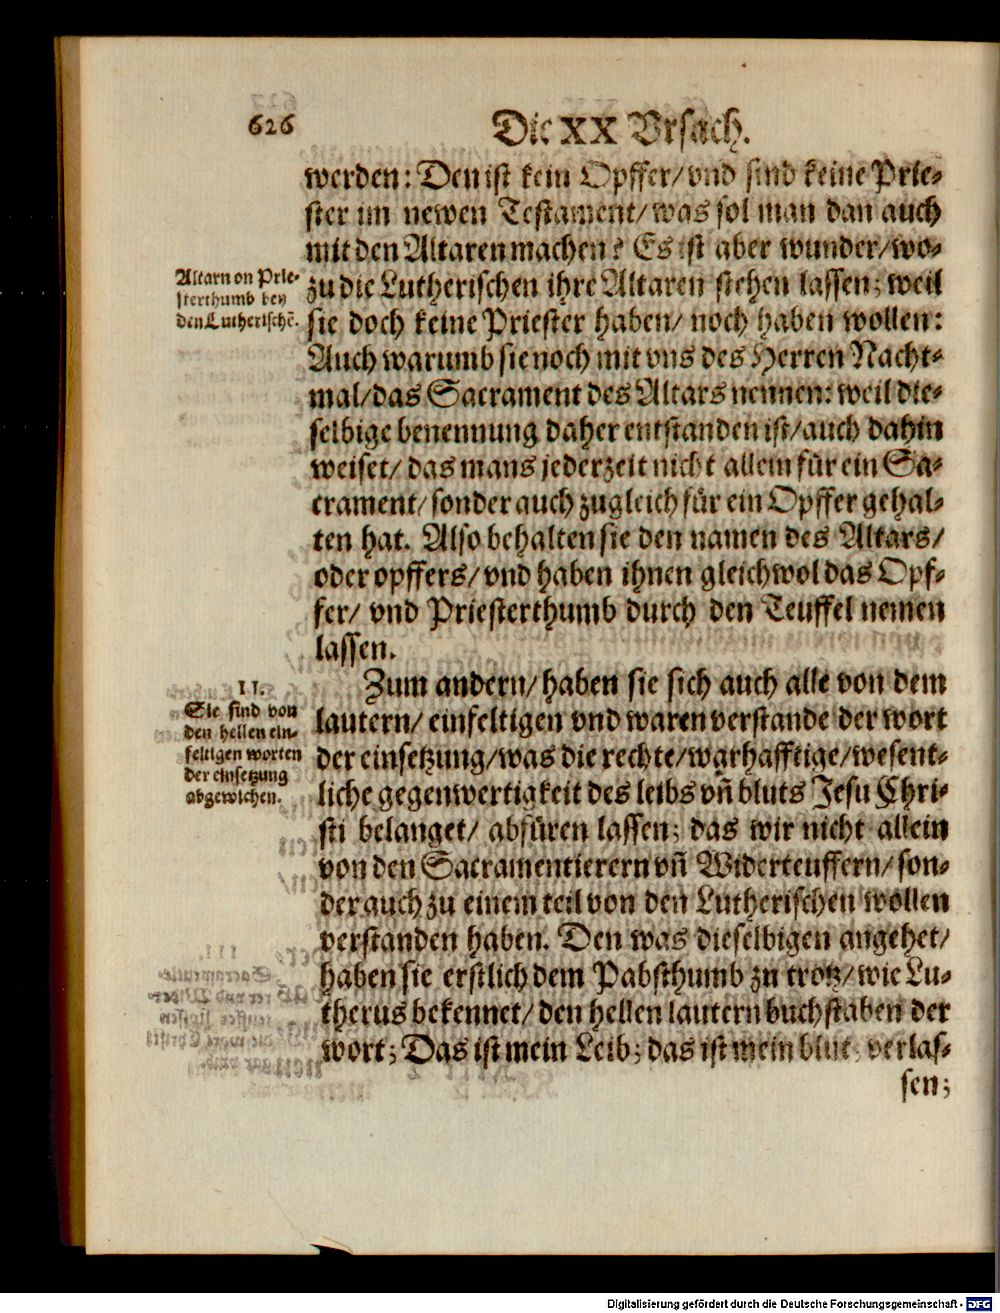 626
Die XX Vrsach.
werden: Den ist kein Opffer/ vnd sind keine Prie-
ster im newen Testament/ was sol man dan auch
mit den Altaren machen? Es ist aber wunder/ wo-
zu die Lutherischen ihre Altaren stehen lassen; weil
sie doch keine Priester haben/ noch haben wollen:
Auch warumb sie noch mit vns des Herren Nacht-
mal/ das Sacrament des Altars nennen: weil die-
selbige benennung daher entstanden ist/ auch dahin
weiset/ das mans jederzeit nicht allein für ein Sa-
crament/ sonder auch zugleich für ein Opffer gehal-
ten hat. Also behalten sie den namen des Altars/
oder opffers/ vnd haben ihnen gleichwol das Opf-
fer/ vnd Priesterthumb durch den Teuffel nemen
lassen.
Altarn on Prie-
sterthumb bey
den Lutherischē.
Zum andern/ haben sie sich auch alle von dem
lautern/ einfeltigen vnd waren verstande der wort
der einsetzung/ was die rechte/ warhafftige/ wesent-
liche gegenwertigkeit des leibs vn̄ bluts Jesu Chri-
sti belanget/ abfüren lassen; das wir nicht allein
von den Sacramentierern vn̄ Widerteuffern/ son-
der auch zu einem teil von den Lutherischen wollen
verstanden haben. Den was dieselbigen angehet/
haben sie erstlich dem Pabsthumb zu trotz/ wie Lu-
therus bekennet/ den hellen lautern buchstaben der
wort; Das ist mein Leib; das ist mein blut, verlas-
sen;
II.
Sie sind von
den hellen ein-
feltigen worten
der einsetzung
abgewichen.
Digitalisierung gefördert durch die Deutsche Forschungsgemeinschaft - DFG